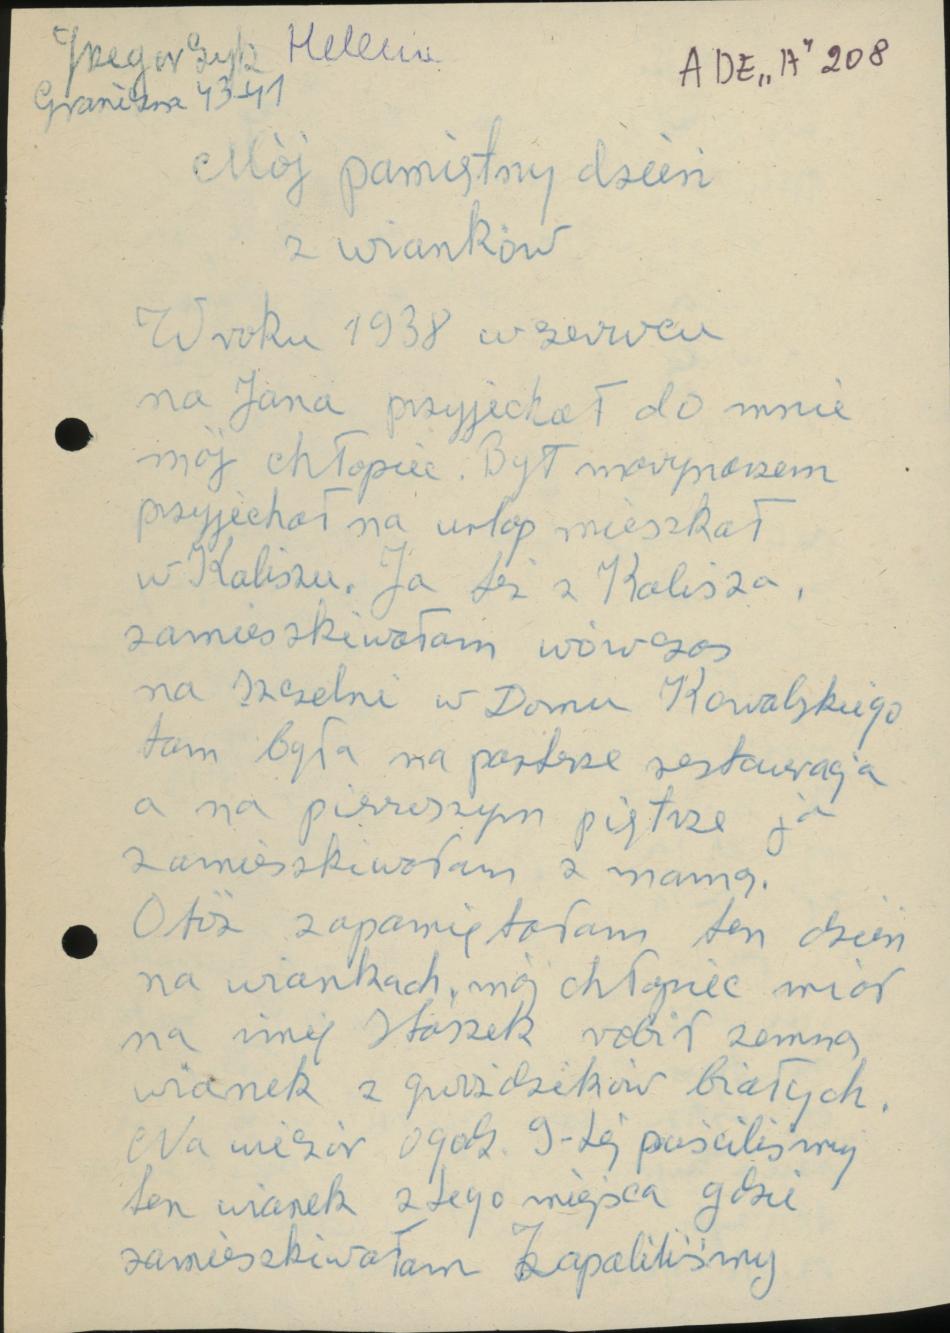 Helena
ADE „A" 208
Graniczna 43-41
Mój pamiętny dzień
z wianków
W roku 1938 w czerwcu
na Jana przyjechał do mnie
mój chłopiec. Był marynarzem
przyjechał na urlop mieszkał
w Kaliszu. Ja też z Kalisza,
zamieszkiwałam wówczas
na Szczelni w Domu Kowalskiego
tam była na parterze restauracja
a na pierwszym piętrze ja
zamieszkiwałam z mamą.
Otóż zapamiętałam ten dzień
na wiankach, mój chłopiec miał
na imię Staszek robił zemną
wianek z gwździków białych.
Na wieczór o godz. 9-tej puściliśmy
ten wianek z tego miejsca gdzie
zamieszkiwałam Zapaliliśmy